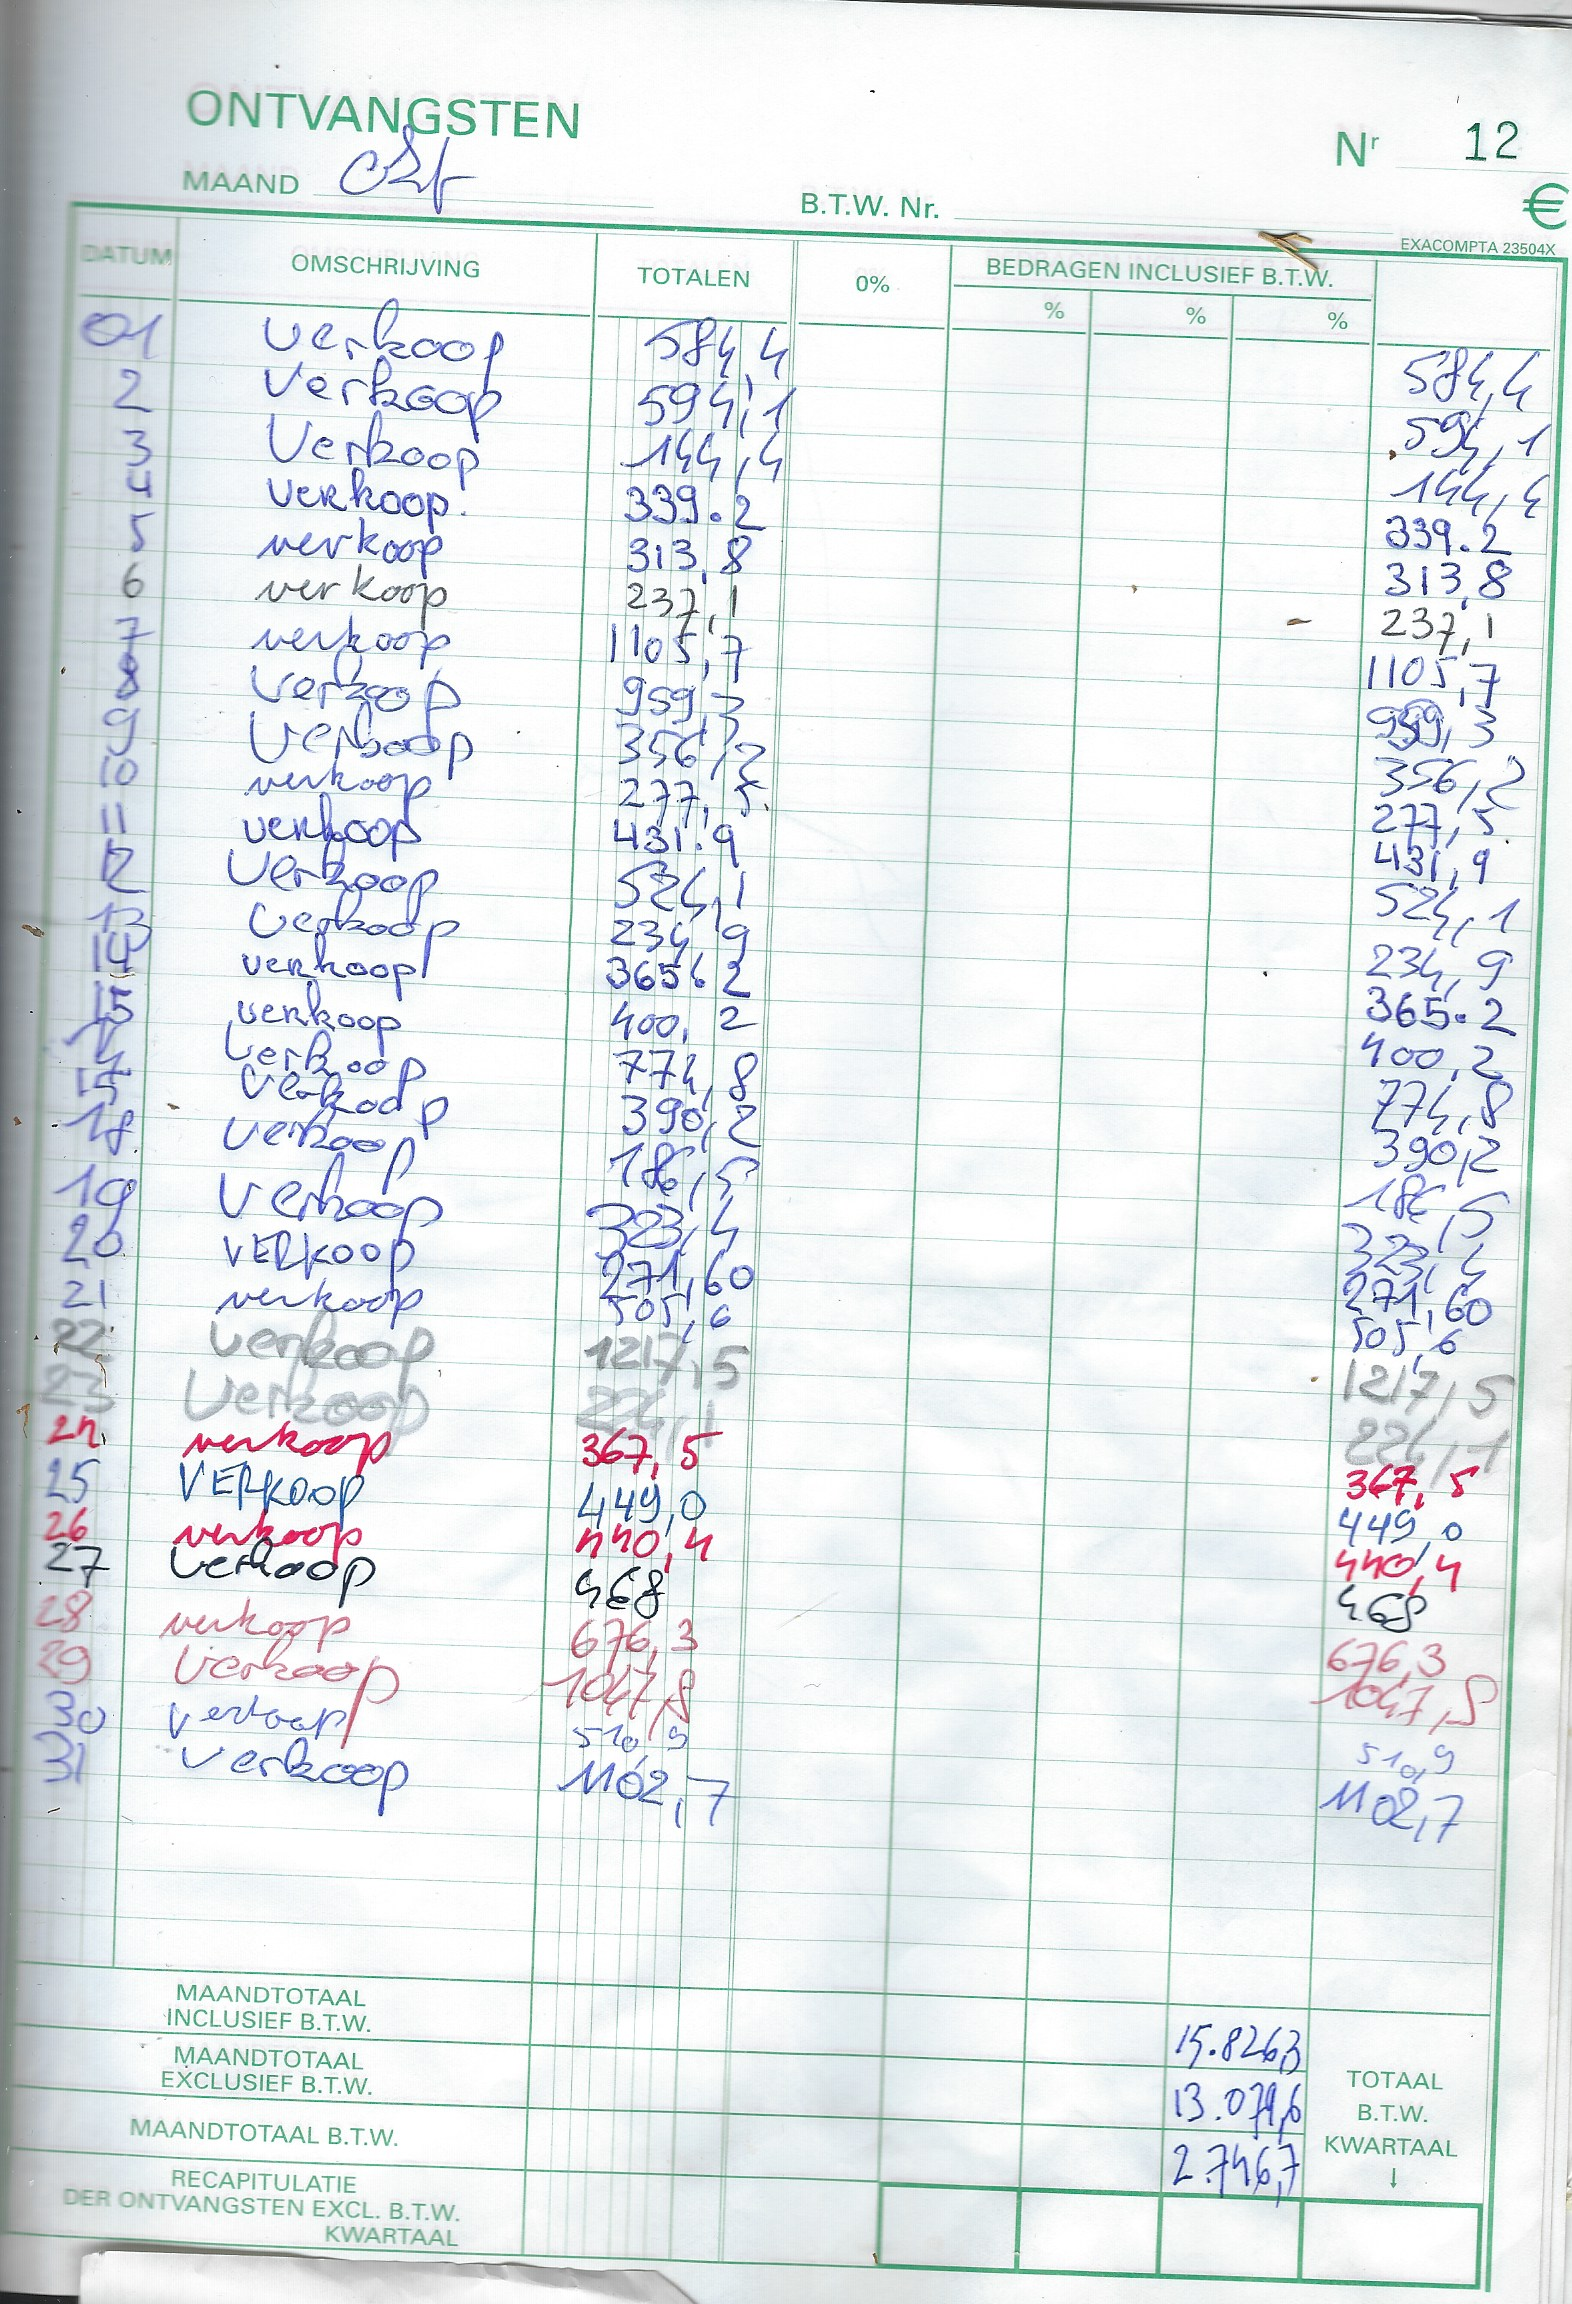 ONTVANGSTEN
Nr 12
MAAND okt
B.T.W. Nr.
€
EXACOMPTA 23504X
DATUM OMSCHRIJVING TOTALEN 0% BEDRAGEN INCLUSIEF B.T.W.
% % %
01 Verkoop 584,4 584,4
2 Verkoop 594,1 594,1
3 Verkoop 144,4 144,4
4 verkoop. 339.2 339.2
5 verkoop 313,8 313,8
6 verkoop 237,1 237,1
7 verkoop 1105,7 1105,7
8 Verkoop 959,3 959,3
9 Verkoop 356,2 356,2
10 verkoop 277,5 277,5
11 verkoop 431.9 431,9
12 Verkoop 524,1 524,1
13 Verkoop 234,9 234,9
14 verkoop 365.2 365.2
15 verkoop 400,2 400,2
Verkoop 774,8 774,8
17 Verkoop 390,2 390,2
18 Verkoop 186,5 186,5
19 Verkoop 323,4 323,4
20 VERKOOP 271,60 271,60
21 verkoop 505,6 505,6
22 verkoop 1217,5 1217,5
23 Verkoop 224,1 224,1
24 verkoop 367,5 367,5
25 VERKOOP 449,0 449,0
26 verkoop 440,4 440,4
27 Verkoop 468 468
28 verkoop 676,3 676,3
29 Verkoop 1047,8 1047,8
30 verkoop 510,9 510,9
31 Verkoop 1102,7 1102,7
MAANDTOTAAL
INCLUSIEF B.T.W. 15.826,3
MAANDTOTAAL
EXCLUSIEF B.T.W. 13.079,6
MAANDTOTAAL B.T.W. 2.746,7
TOTAAL
B.T.W.
KWARTAAL
↓
RECAPITULATIE
DER ONTVANGSTEN EXCL. B.T.W.
KWARTAAL